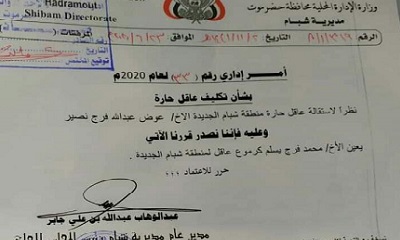 Hadramout
Shibam Directorate
وزارة الإدارة المحلية محافظة حضرموت
مديرية شبام
الرقم
التاريخ
الموافق
المرفقات
التاريخ
توقيع
أمر إداري رقم (٣٣) لعام 2020م
بشأن تكليف عاقل حارة
نظراً لاستقالة عاقل حارة منطقة شبام الجديدة الاخ/ عوض عبدالله فرج نصير
وعليه فإننا نصدر قررنا الأتي
يعين الأخ/ محمد فرج يسلم كرموع عاقل لمنطقة شبام الجديدة .
حرر للاعتماد ,,,
عبدالوهاب عبدالله بن علي جابر
مدير عام مديرية شبام